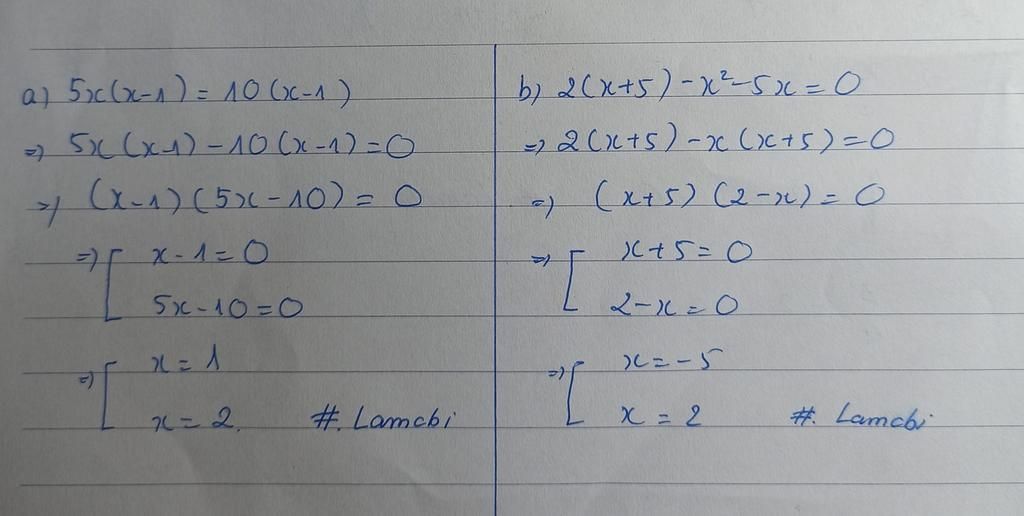 a) 5x(x-1) = 10(x-1)
=> 5x(x-1) - 10(x-1) = 0
=> (x-1)(5x-10) = 0
=> [ x-1 = 0
5x-10 = 0
=> [ x = 1
x = 2. #. Lamcbi
b) 2(x+5) - x² - 5x = 0
=> 2(x+5) - x(x+5) = 0
=> (x+5)(2-x) = 0
=> [ x+5 = 0
2-x = 0
=> [ x = -5
x = 2 #. Lamcbi